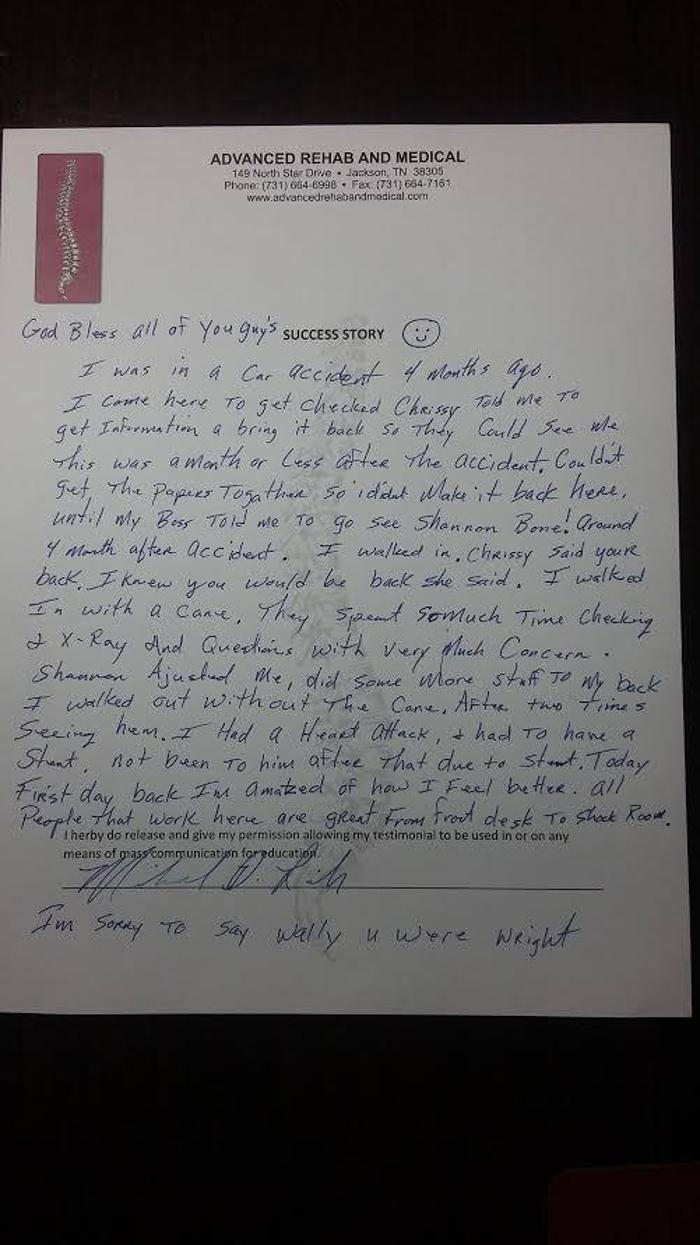 ADVANCED REHAB AND MEDICAL
149 North Star Drive • Jackson, TN 38305
Phone: (731) 664-6998 • Fax: (731) 664-7161
www.advancedrehabandmedical.com
God Bless all of You guy's SUCCESS STORY
I was in a Car accident 4 Months ago.
I came here To get checked Chrissy Told me To
get Information a bring it back so They Could See me
This was a month or Less after The accident. Couldn't
get The Papers Together so i didnt Make it back here.
until My Boss Told me To go see Shannon Bone! Around
4 Month after accident. I walked in. Chrissy said youre
back. I knew you would be back she said. I walked
In with a Cane. They spent so much Time Checking
& X-Ray And Questions with very Much Concern.
Shannon Ajusted Me, did some More stuff To My back
I walked out without The Cane. After two Times
Seeing him. I Had a Heart Attack, & had To have a
Stent. not been To him after That due to Stent. Today
First day back I'm amatzed of how I Feel better. all
People That work here are great From front desk To Shock Room.
I herby do release and give my permission allowing my testimonial to be used in or on any
means of mass communication for education.
I'm Sorry To Say Wally u were Wright